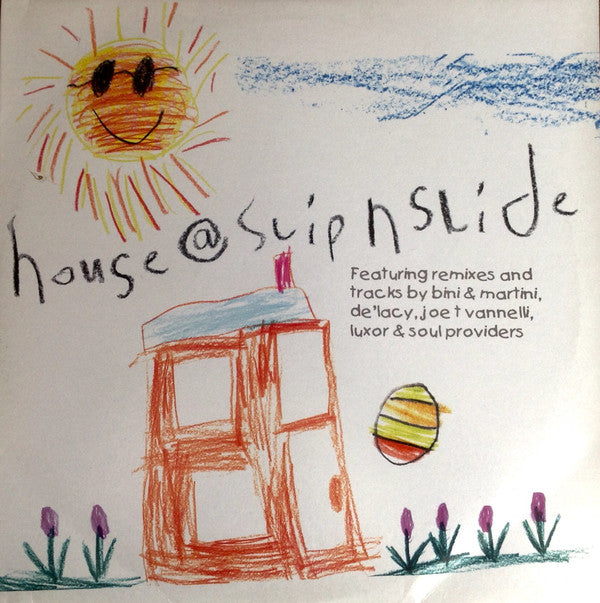 house @ slip n slide
Featuring remixes and
tracks by bini & martini,
de'lacy, joe t vannelli,
luxor & soul providers